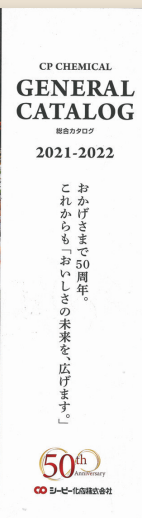 CP CHEMICAL
GENERAL
CATALOG
総合カタログ
2021-2022
おかげさまで50周年。
これからも「おいしさの未来を、広げます。」
50th
Anniversary
シーピー化成株式会社